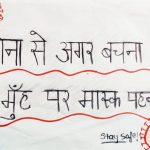 ना से अगर बचना
मुँह पर मास्क पहन
stay safe!